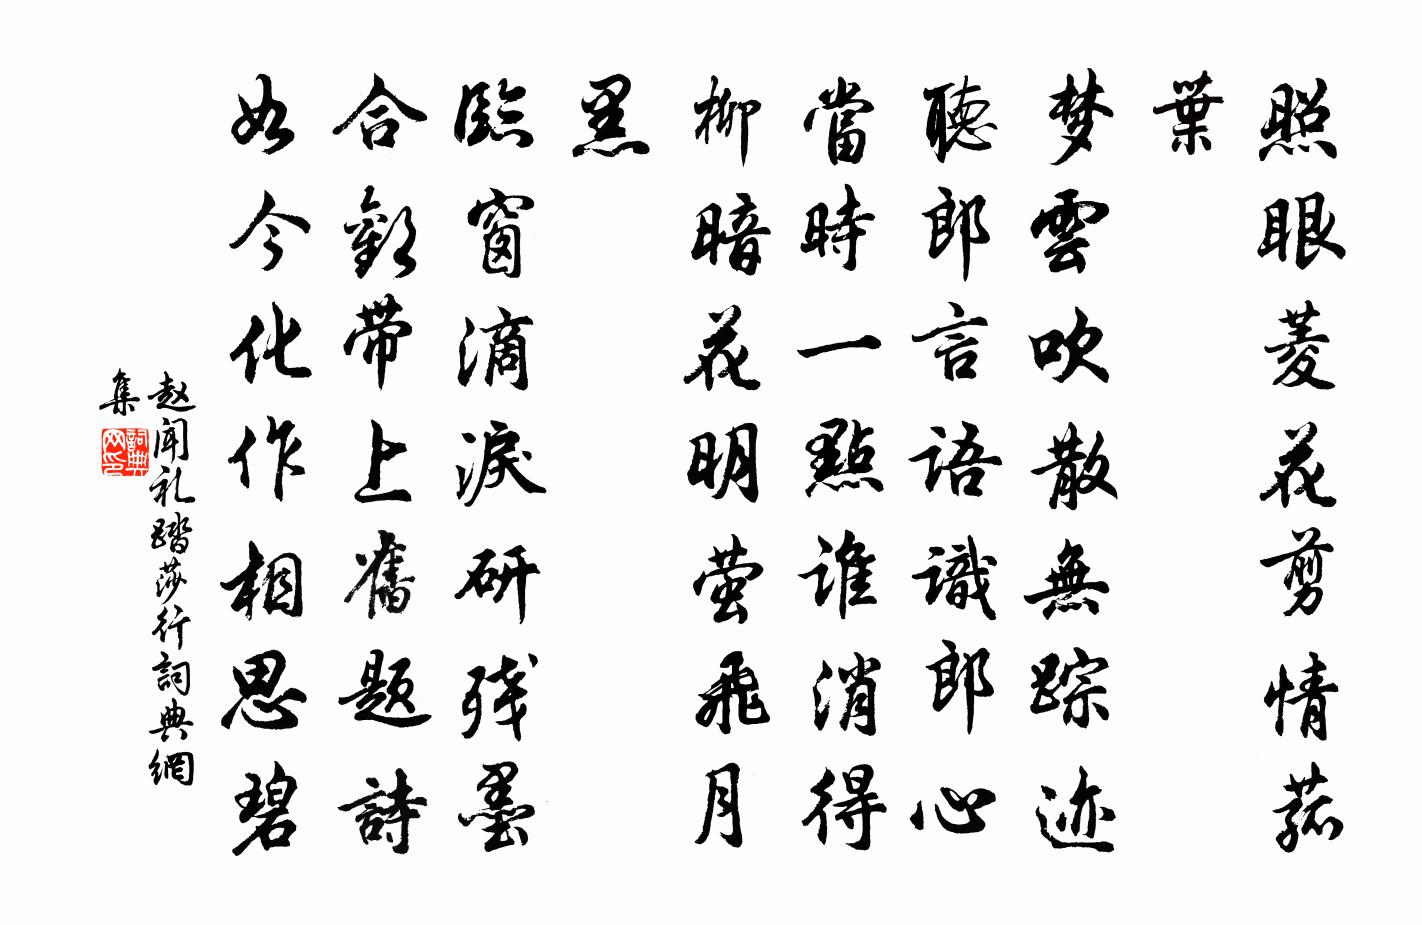 照眼菱花剪情菰
葉
梦雲吹散無踪迹
聽郎言語識郎心
當時一點誰消得
柳暗花明萤飛月
黑
臨窗滴淚研残墨
合歡带上舊题詩
如今化作相思碧
赵闻礼踏莎行詞典網
集
詞典
网印